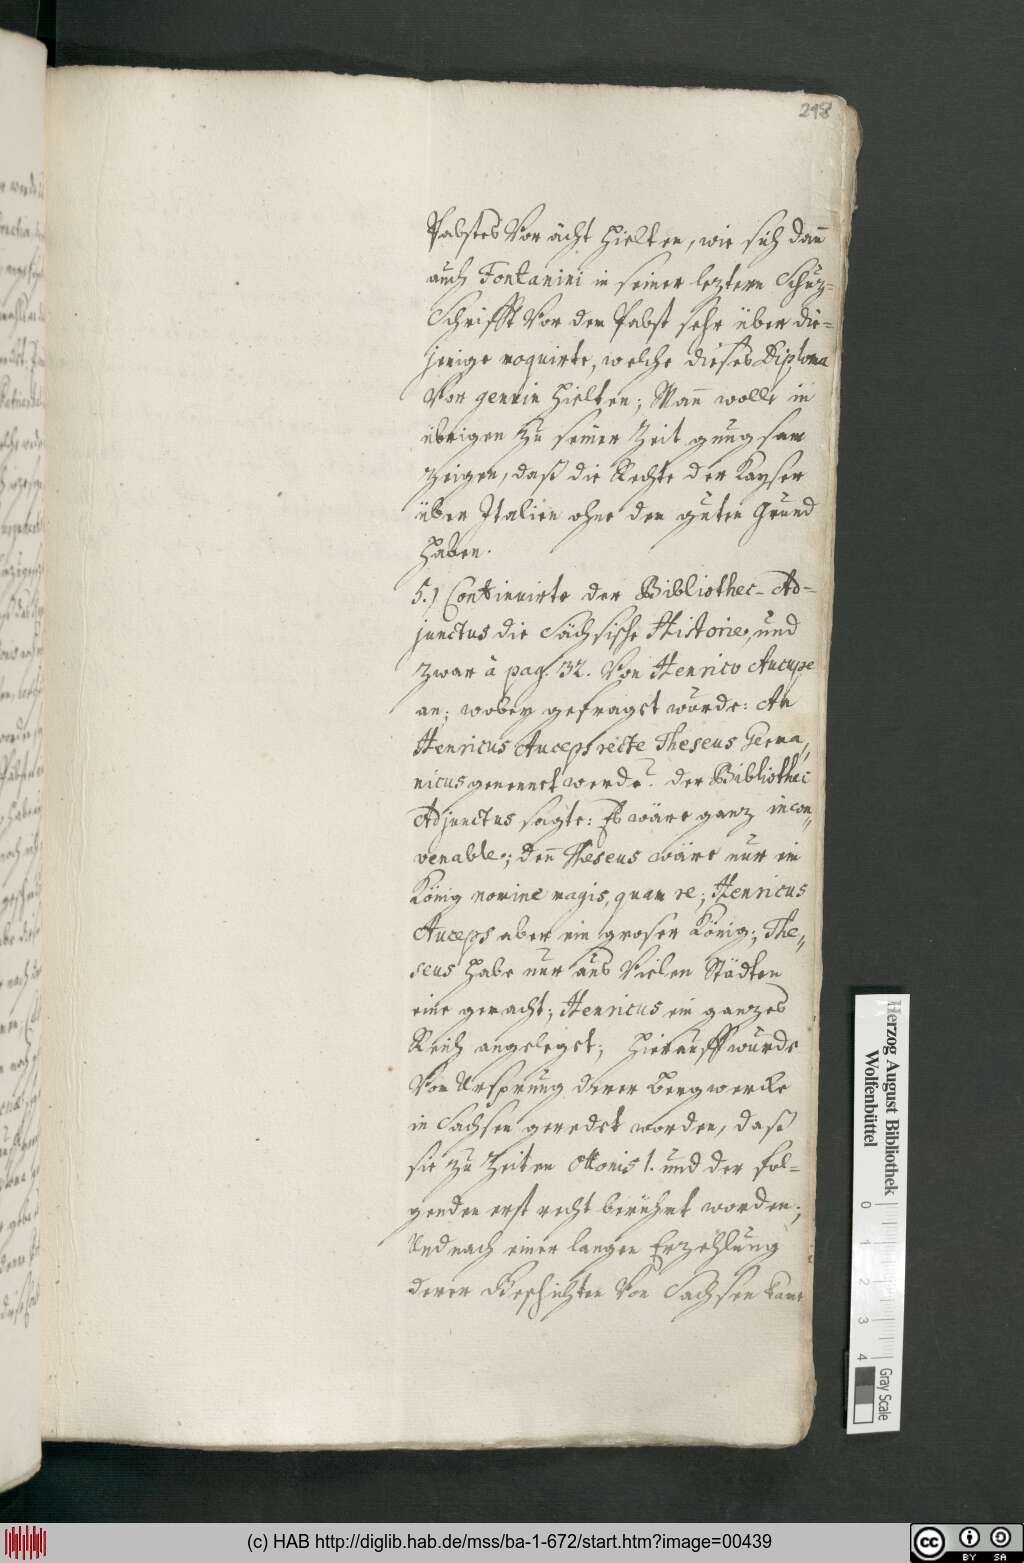 218
Pabstes vor ächt hielten, wie sich dañ
auch Fontanini in seiner leztern Schuz=
Schrifft vor den Pabst sehr über die=
jenige moquirte, welche dieses Diploma
vor genuin hielten; Mañ wolle in
übrigen zu seiner Zeit gnugsam
zeigen, daß die Rechte der Kayser
über Italien ohne den guten Grund
haben.
5.) Continuirte der Bibliothec-Ad=
junctus die Sächsische Historie, und
zwar à pag. 132. von Henrico Aucupe
an; wobey gefraget wurde: An
Henricus Auceps recte Theseus Germa,,
nicus genennet werde? der Bibliothec
Adjunctus sagte: Es wäre ganz incon,,
venable; deñ Theseus wäre nur ein
König nomine magis, quam re; Henricus
Auceps aber ein groser König; The,,
seus habe nur aus vielen Städten
eine gemacht; Henricus ein ganzes
Reich angeleget; Hierauff wurde
von Ursprung derer Bergwercke
in Sachsen geredet worden, daß
sie zu Zeiten Ottonis 1. und der fol=
genden erst recht berühmt worden;
Und nach einer langen Erzehlung
derer Geschichten von Sachsen kame
Herzog August Bibliothek
Wolfenbüttel
0 1 2 3 4
Gray Scale
(c) HAB http://diglib.hab.de/mss/ba-1-672/start.htm?image=00439
cc BY SA